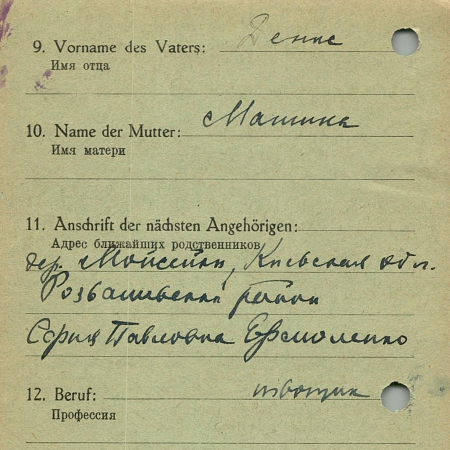 9. Vorname des Vaters: Денис
Имя отца
10. Name der Mutter:
Имя матери
11. Anschrift der nächsten Angehörigen:
Адрес ближайших родственников
дер. Мойсейки, Киевская обл.
район
София Павловна Ермоленко
12. Beruf:
Профессия